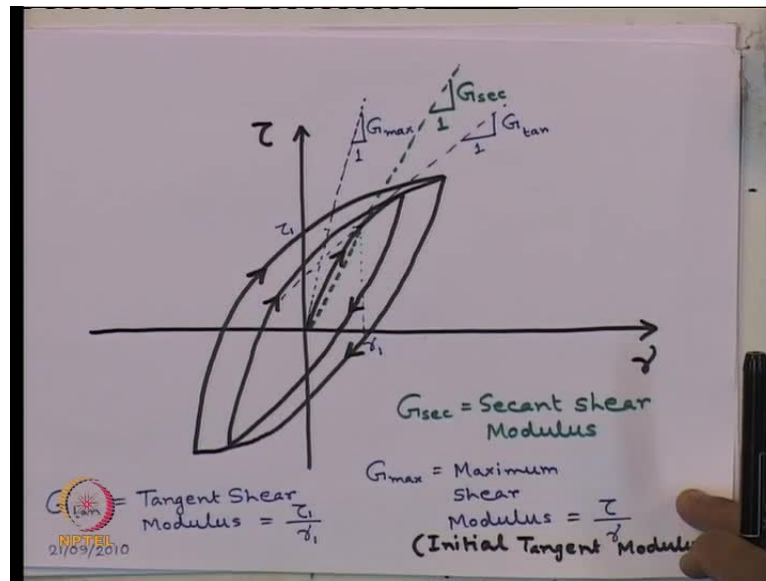 τ
Gmax
1
Gsec
1
Gtan
1
τ₁
γ₁
γ
Gsec = Secant Shear
Modulus
Gmax = Maximum
Shear
Modulus = τ/γ
(Initial Tangent
= Tangent Shear
Modulus = τ₁/γ₁
NPTEL
21/09/2010